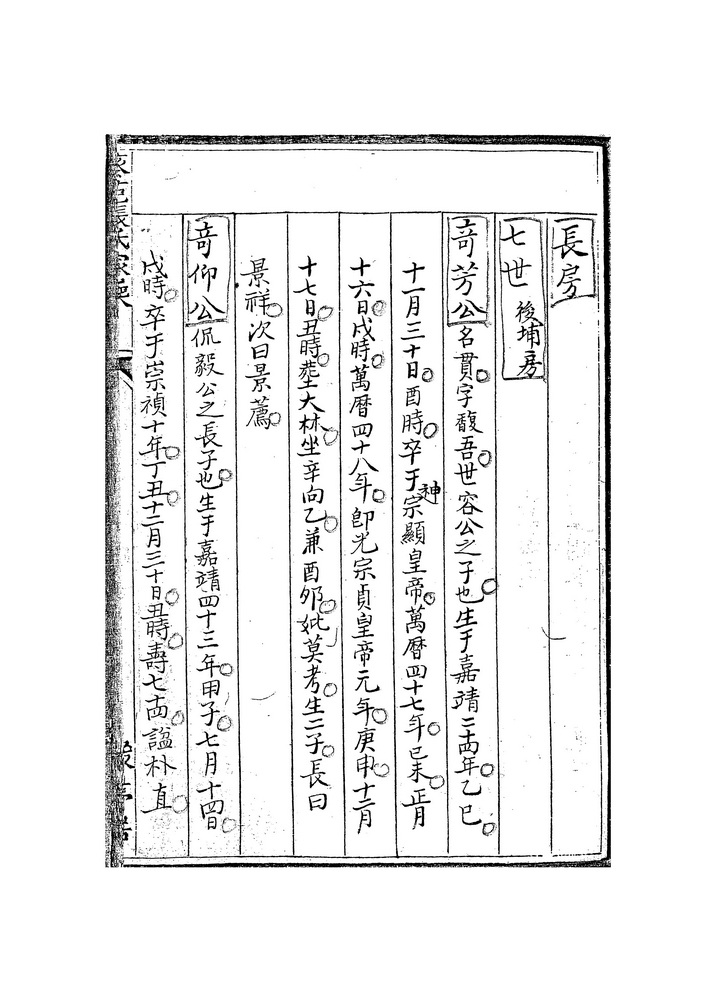 長房
七世 後埔房
奇芳公名貫字馥吾世容公之子也生于嘉靖二十四年乙巳
十一月三十日酉時卒于神宗顯皇帝萬曆四十七年己未正月
十六日戌時萬曆四十八年即光宗貞皇帝元年庚申十二月
十七日丑時塟大林坐辛向乙兼酉夘妣莫考生二子長曰
景祥次曰景薦
奇仰公侃毅公之長子也生于嘉靖四十三年甲子七月十四日
戌時卒于崇禎十年丁丑十二月三十日丑時壽七十四諡朴直
張氏家